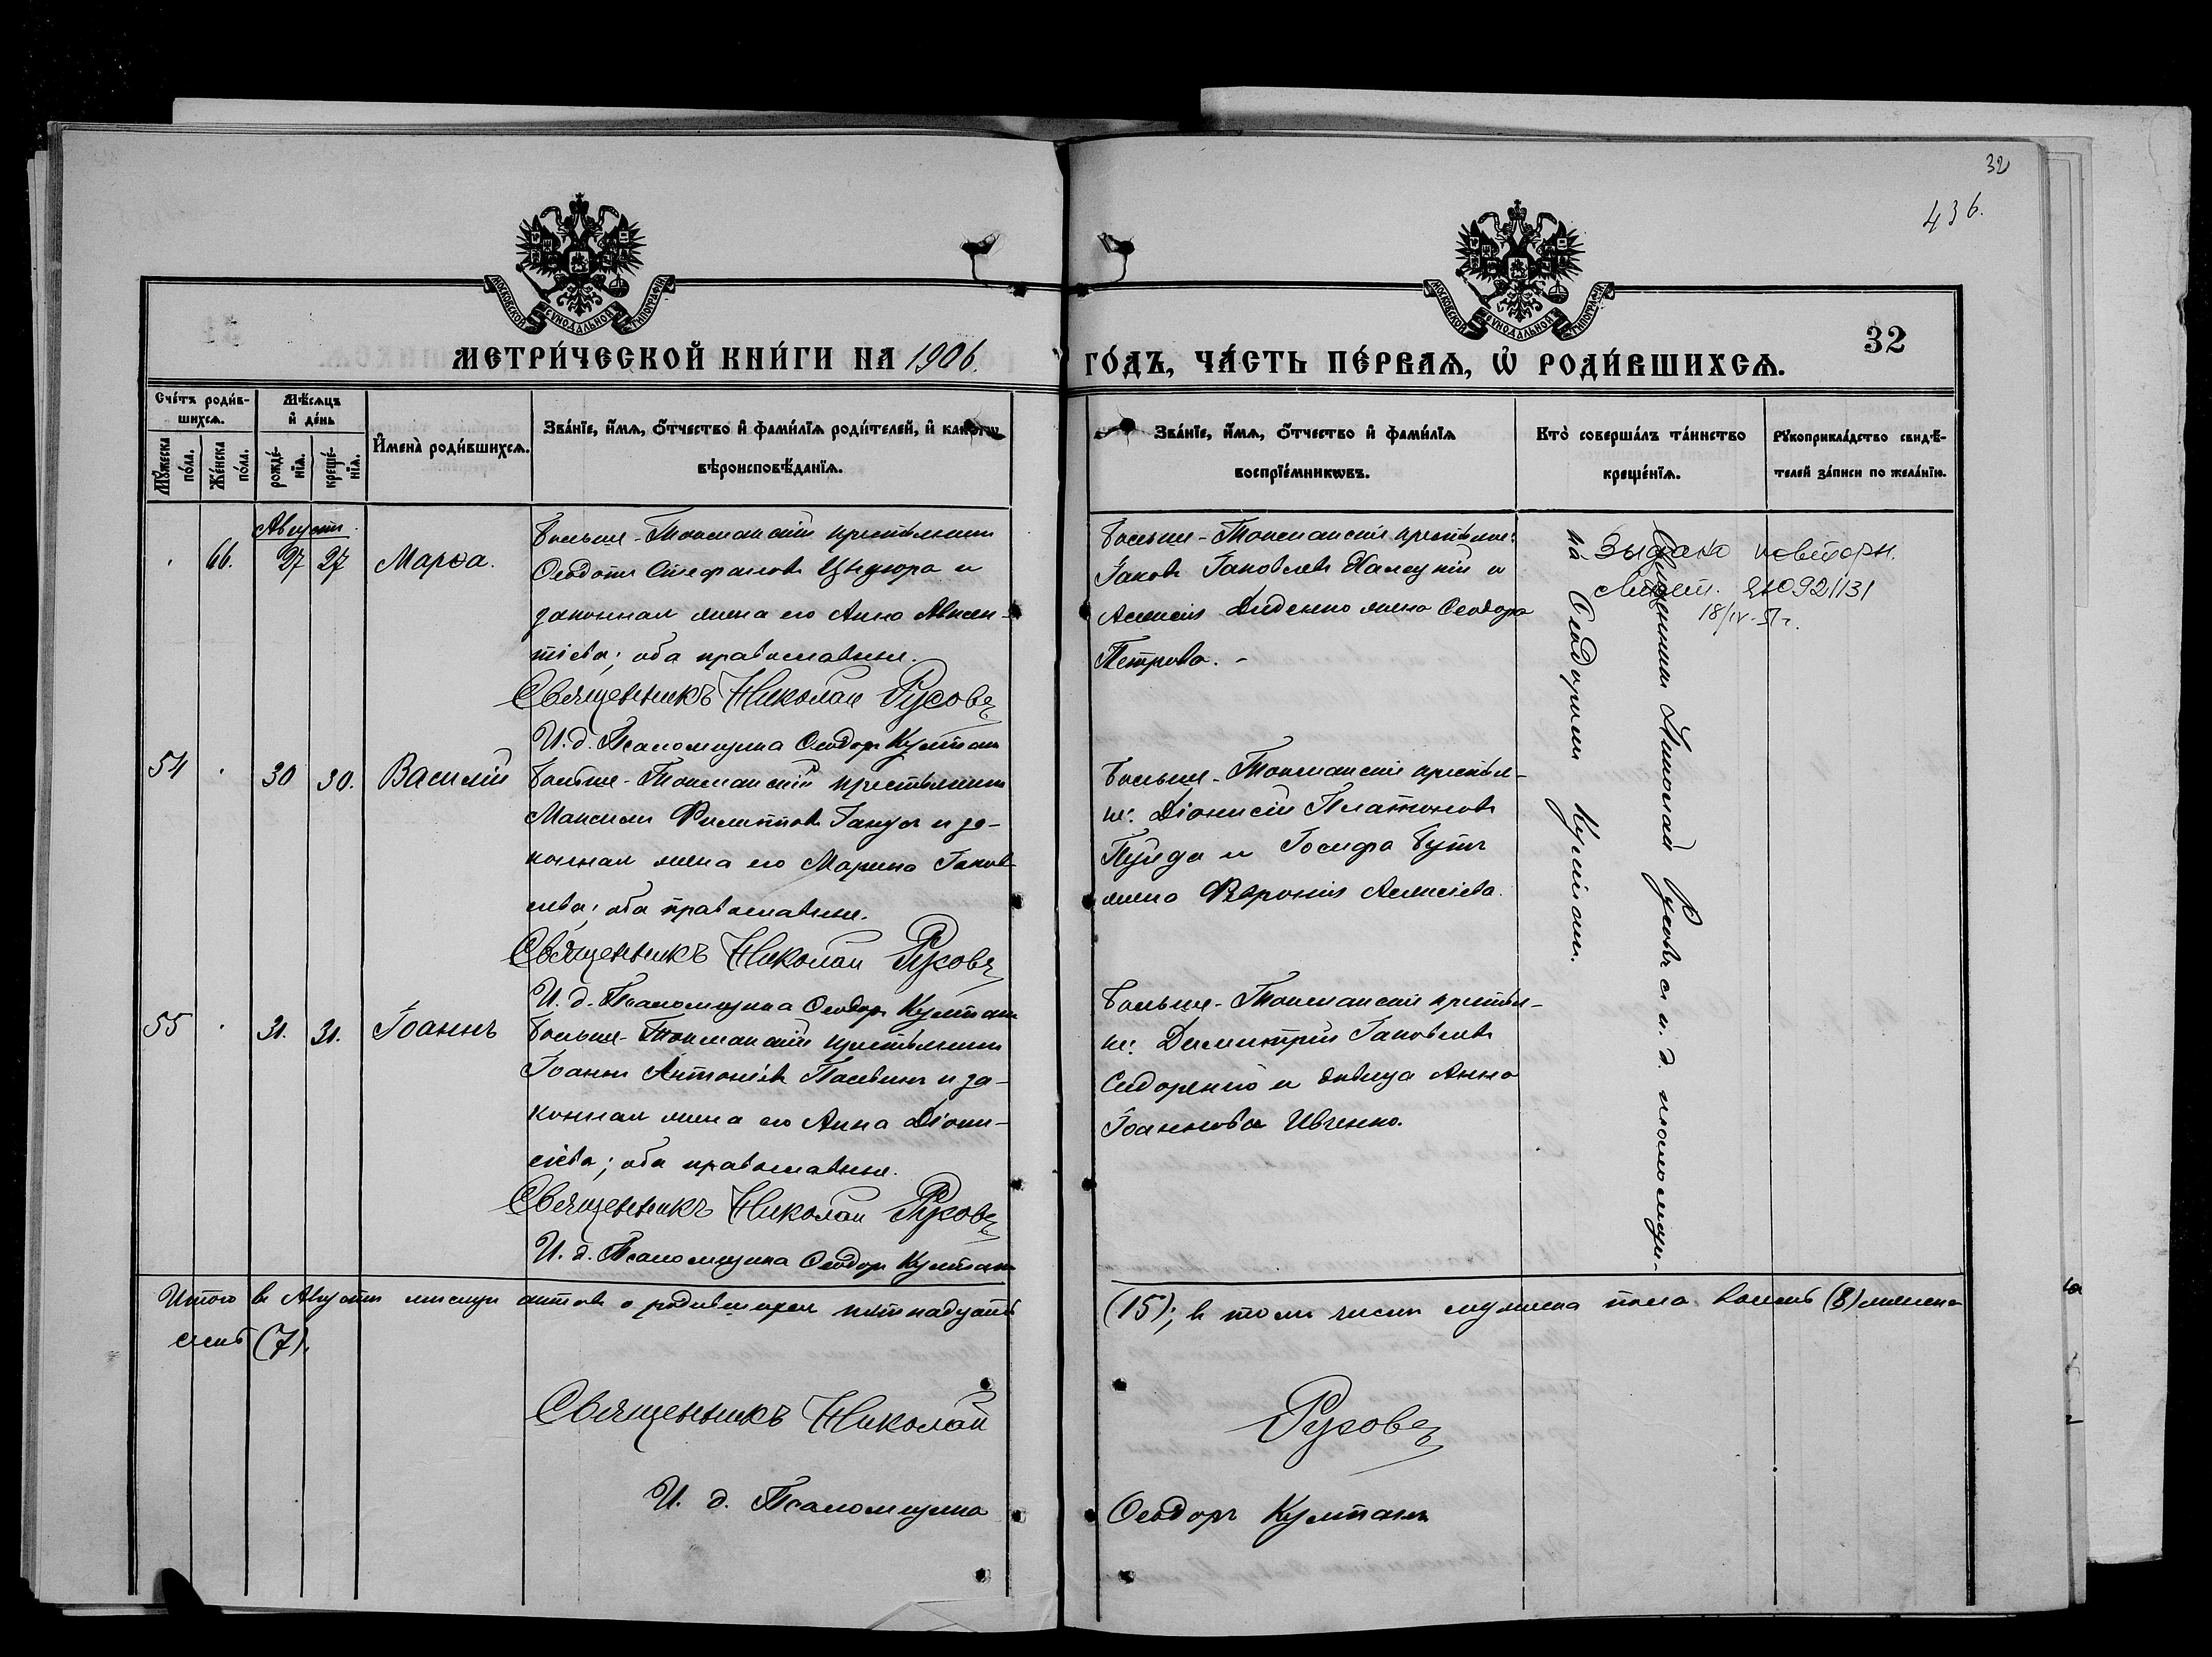 32
436.
МОСКОВСКОЙ СѴНОДАЛЬНОЙ ТИПОГРАФІИ
МОСКОВСКОЙ СѴНОДАЛЬНОЙ ТИПОГРАФІИ
32
МЕТРИ́ЧЕСКОЙ КНИ́ГИ НА 1906. ГО́ДЪ, ЧА́СТЬ ПЕ́РВАѦ, Ѡ҆ РОДИ́ВШИХСѦ.
Сче́тъ роди́в-
шихсѧ.
Мꙋ́жеска по́ла.
Же́нска по́ла.
Мѣ́сѧцъ
и҆ де́нь
рожде́-
нїѧ.
креще́-
нїѧ.
И҆мена̀ роди́вшихсѧ.
Зва́нїе, и҆́мѧ, ѻ҆́тчество и҆ фами́лїѧ роди́телей, и҆ како́гѡ
вѣроисповѣ́данїѧ.
Зва́нїе, и҆́мѧ, ѻ҆́тчество и҆ фами́лїѧ
воспрїе́мникѡвъ.
Кто̀ соверша́лъ та́инство
креще́нїѧ.
Рꙋкоприкла́дство свидѣ́-
телей за́писи по жела́нїю.
Августъ.
66. 27 27 Марѳа.
Больше-Токмакскій крестьянинъ
Ѳеодотъ Стефановъ Цыцюра и
законная жена его Анна Авксен-
тіева; оба православные.
Священникъ Николай Русовъ
И. д. Псаломщика Ѳеодоръ Культанъ
Больше-Токмакскіе крестьяне:
Іаковъ Іаковлевъ Халецкій и
Агаѳія Диденко жена Ѳеодора
Петрова. -
Священникъ Николай Русовъ и и. д. псаломщи-
ка Ѳеодоръ Культанъ.
Выдано повторн.
свидет. ЯЮ 92/131
18/IV-51г.
54 30 30. Василій
Больше-Токмакскій крестьянинъ
Максимъ Филипповъ Гакулъ и за-
конная жена его Марина Іаков-
лева; оба православные.
Священникъ Николай Русовъ
И. д. Псаломщика Ѳеодоръ Культанъ
Больше-Токмакскіе крестья-
не: Діонисій Платоновъ
Пузида и Іосифа Бутъ
жена Февронія Алексіева.
55 31. 31. Іоаннъ
Больше-Токмакскій крестьянинъ
Іоаннъ Антоніевъ Пасевинъ и за-
конная жена его Анна Діони-
сіева; оба православные.
Священникъ Николай Русовъ
И. д. Псаломщика Ѳеодоръ Культанъ
Больше-Токмакскіе крестья-
не: Димитрій Іаковлевъ
Сидоренко и дѣвица Анна
Іоаннова Ивченко.
Итого въ Августѣ мѣсяцѣ актовъ о родившихся пятнадцать (15); въ томъ числѣ мужеска пола восемь (8) женска
семь (7).
Священникъ Николай Русовъ
И. д. Псаломщика Ѳеодоръ Культанъ